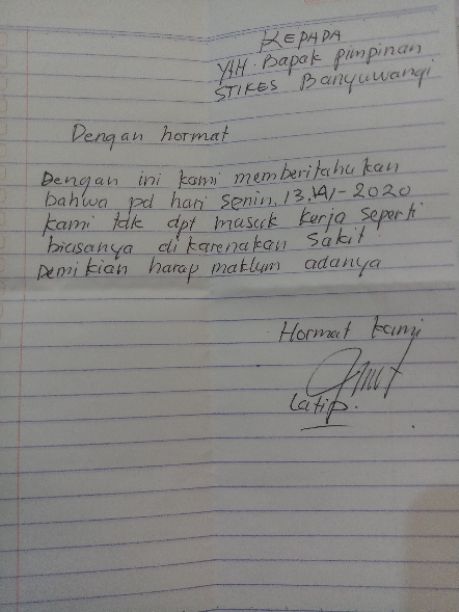 KEPADA
YAH. Bapak pimpinan
STIKES Banyuwangi
Dengan hormat
Dengan ini kami memberitahukan
bahwa pd hari senin, 13. -2020
kami tdk dpt masuk kerja seperti
biasanya di karenakan Sakit
Demikian harap maklum adanya
Hormat kami
Latip.